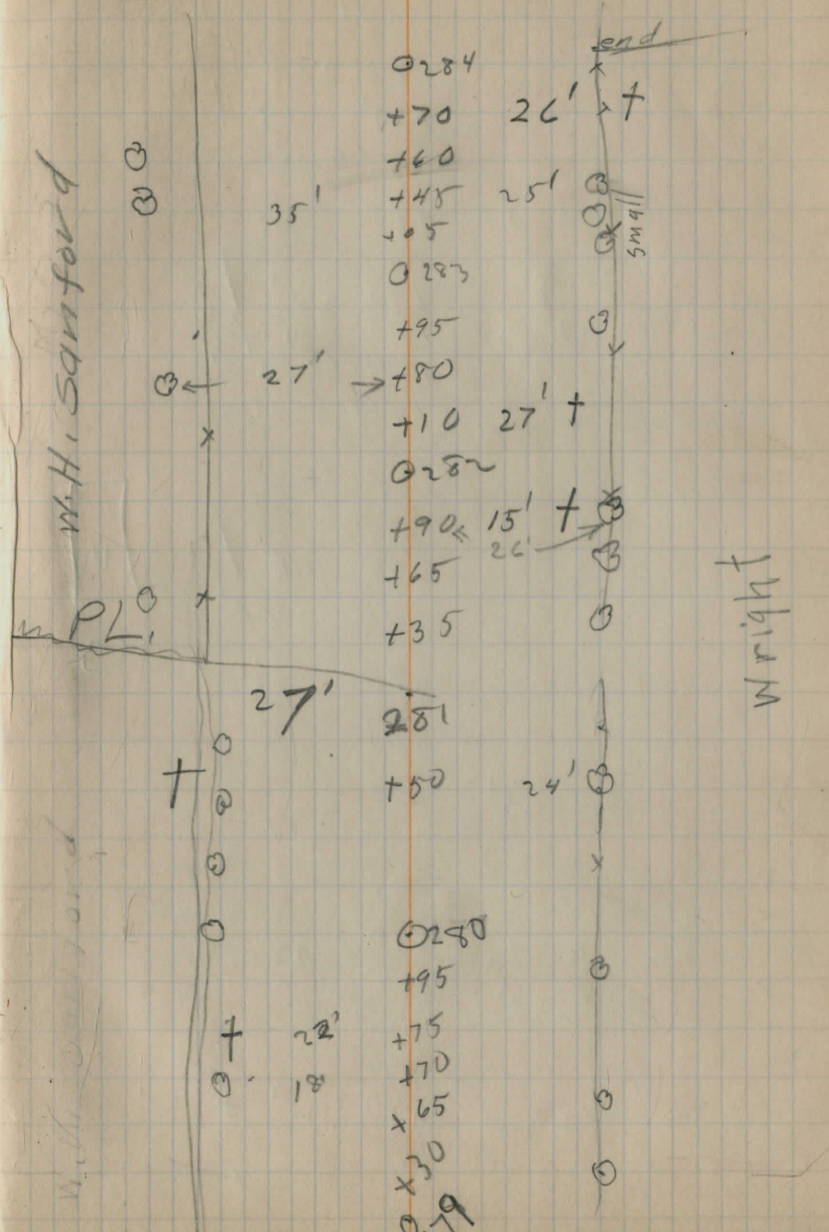 end
284
+70 26'
+60
+45 25'
35'
+05
small
283
+95
27' +80
+10 27'
282
+90 15'
26'
+65
+35
W.H. Sanford
PL.
Wright
27'
281
+50 24'
280
+95
22' +75
18 +70
x 65
x 30
79